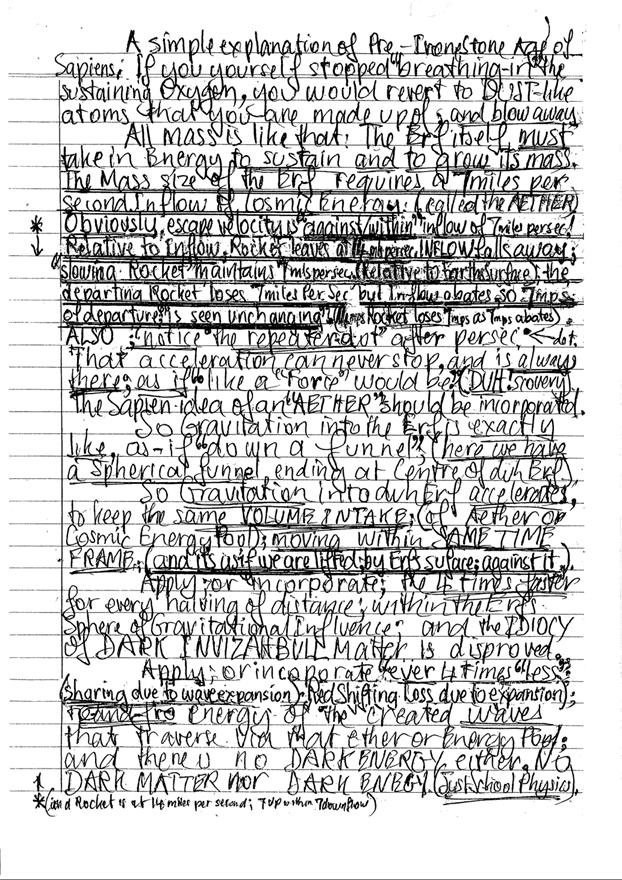 A simple explanation of Pre-Ironestone Age of
Sapiens: If you yourself stopped "breathing-in" the
sustaining Oxygen, you would revert to DUST-like
atoms that you are made up of; and blow away
All mass is like that: The Erf itself must
take in Energy to sustain and to grow its mass.
The Mass size of the Erf requires a 7miles per
second Inflow of Cosmic Energy: (called the AETHER)
* Obviously, escape velocity is "against/within" inflow of 7miles persec!
Relative to Inflow, Rocket leaves at 14miles persec. INFLOW falls away;
slowing. Rocket "maintains" 7mls persec, (Relative to Earth surface): the
departing Rocket loses 7miles Per Sec but Inflow abates so 7mps
of departure: is seen unchanging. (14mps Rocket loses 7mps as 7mps abates).
ALSO: "notice the repeated dot" after persec. ← dot.
That acceleration can never stop, and is always
there; as if "like a "Force" would be! (DUH! scovery)
The Sapien idea of an "AETHER" should be incorporated.
So Gravitation into the Erf is exactly
like, as-if "down a funnel"; (here we have
a Spherical funnel ending at Centre of duh Erf)
So Gravitation into duh Erf accelerates,
to keep the same VOLUME INTAKE; (of Aether or
Cosmic Energy Pool); moving within SAME TIME
FRAME. (and "it's as if we are lifted; by Erfs surface; against it").
Apply; or "incorporate; the 4 times faster
for every halving of distance; within the Erfs
Sphere of Gravitational Influence; and the IDIOCY
of DARK INVIZARBUL Matter is disproved.
Apply; or incorporate "ever 4 times "less"
(sharing due to wave expansion). Red Shifting (loss due to expansion);
to-and-fro energy of "the "created waves
that traverse via that ether or Energy Pool;
and there is no DARK ENERGY either. NO
DARK MATTER nor DARK ENERGY. (Just School Physics).
*(and Rocket is at 14 miles per second; 7 up within 7 downflow)